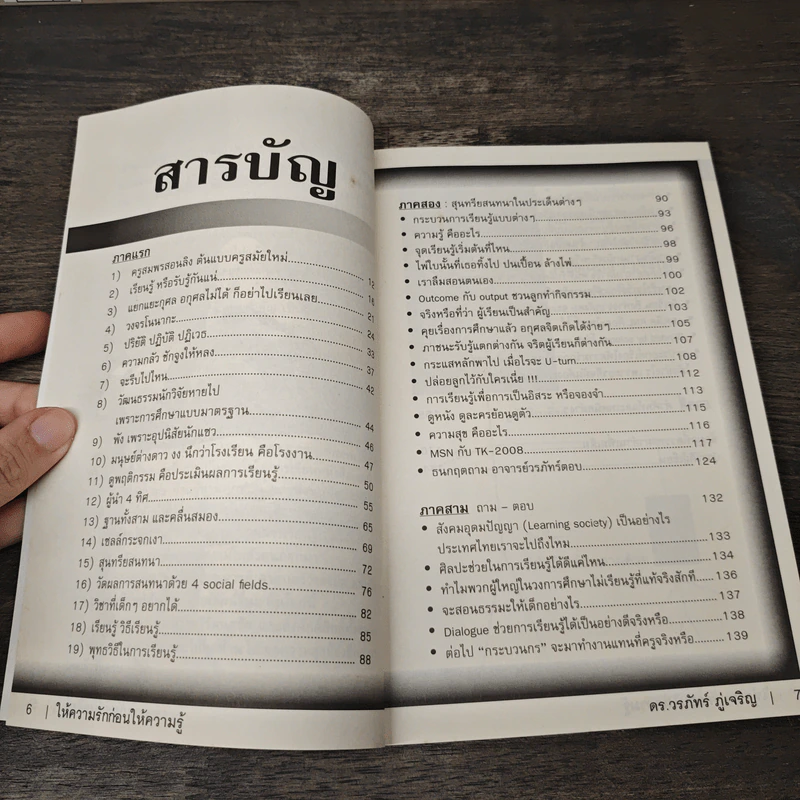 สารบัญ
ภาคแรก
1) ครูสมพรสอนลิง ต้นแบบครูสมัยใหม่........12
2) เรียนรู้ หรือรับรู้กันแน่........16
3) แยกแยะกุศล อกุศลไม่ได้ ก็อย่าไปเรียนเลย........21
4) วงจรโนนากะ........24
5) ปริยัติ ปฏิบัติ ปฏิเวธ........33
6) ความกลัว ชักจูงให้หลง........37
7) จะรีบไปไหน........42
8) วัฒนธรรมนักวิจัยหายไป
เพราะการศึกษาแบบมาตรฐาน........44
9) พัง เพราะอุปนิสัยนักแซว........46
10) มนุษย์ต่างดาว งง นึกว่าโรงเรียน คือโรงงาน........47
11) ดูพฤติกรรม คือประเมินผลการเรียนรู้........50
12) ผู้นำ 4 ทิศ........55
13) ฐานทั้งสาม และคลื่นสมอง........65
14) เซลล์กระจกเงา........69
15) สุนทรียสนทนา........72
16) วัดผลการสนทนาด้วย 4 social fields........76
17) วิชาที่เด็กๆ อยากได้........82
18) เรียนรู้ วิธีเรียนรู้........85
19) พุทธวิธีในการเรียนรู้........88
6 | ให้ความรักก่อนให้ความรู้
ภาคสอง : สุนทรียสนทนาในประเด็นต่างๆ 90
• กระบวนการเรียนรู้แบบต่างๆ........93
• ความรู้ คืออะไร........96
• จุดเรียนรู้เริ่มต้นที่ไหน........98
• ไพ่ใบนั้นที่เธอทิ้งไป ปนเปื้อน ล้างไพ่........99
• เราลืมสอนตนเอง........100
• Outcome กับ output ชวนลูกทำกิจกรรม........102
• จริงหรือที่ว่า ผู้เรียนเป็นสำคัญ........103
• คุยเรื่องการศึกษาแล้ว อกุศลจิตเกิดได้ง่ายๆ........105
• ภาชนะรับรู้แตกต่างกัน จริตผู้เรียนก็ต่างกัน........107
• กระแสหลักพาไป เมื่อไรจะ U-turn........108
• ปล่อยลูกไว้กับใครเนี่ย !!!........112
• การเรียนรู้เพื่อการเป็นอิสระ หรือจองจำ........113
• ดูหนัง ดูละครย้อนดูตัว........115
• ความสุข คืออะไร........116
• MSN กับ TK-2008........117
• ธนกฤตถาม อาจารย์วรภัทร์ตอบ........124
ภาคสาม ถาม – ตอบ 132
• สังคมอุดมปัญญา (Learning society) เป็นอย่างไร
ประเทศไทยเราจะไปถึงไหม........133
• ศิลปะช่วยในการเรียนรู้ได้ดีแค่ไหน........134
• ทำไมพวกผู้ใหญ่ในวงการศึกษาไม่เรียนรู้ที่แท้จริงสักที........136
• จะสอนธรรมะให้เด็กอย่างไร........137
• Dialogue ช่วยการเรียนรู้ได้เป็นอย่างดีจริงหรือ........138
• ต่อไป “กระบวนกร” จะมาทำงานแทนที่ครูจริงหรือ........139
ดร.วรภัทร์ ภู่เจริญ | 7